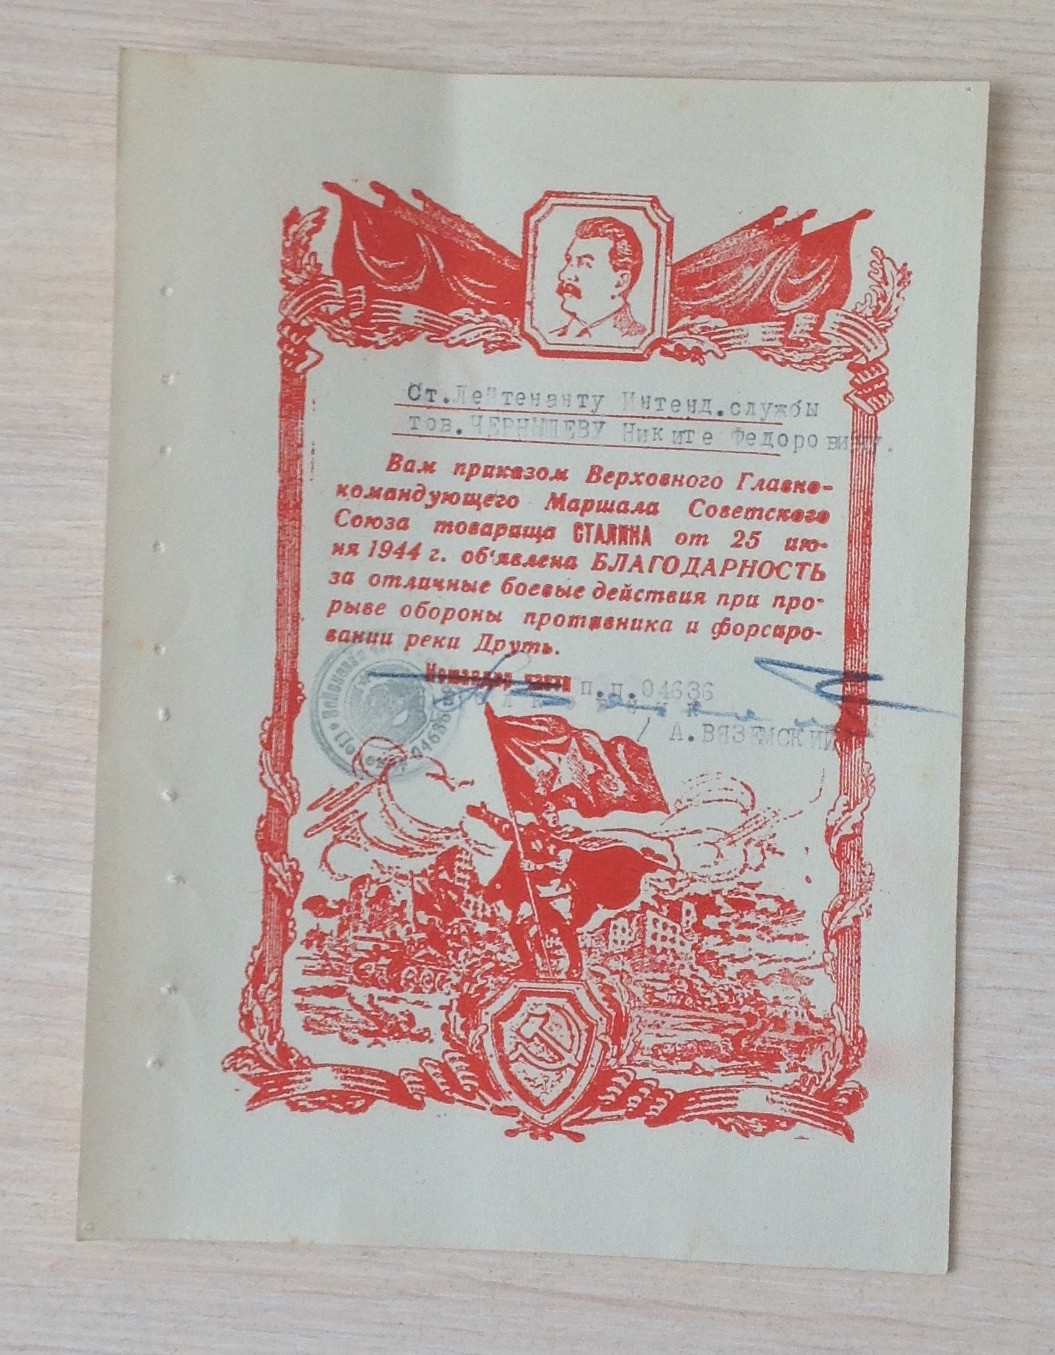 Ст.Лейтенанту Интенд.службы
тов.ЧЕРНЫШЕВУ Никите Федоровичу.
Вам приказом Верховного Главно-
командующего Маршала Советского
Союза товарища СТАЛИНА от 25 ию-
ня 1944 г. об'явлена БЛАГОДАРНОСТЬ
за отличные боевые действия при про-
рыве обороны противника и форсиро-
вании реки Друть.
Командир части п.п.04636
/ А.ВЯЗЕМСКИЙ